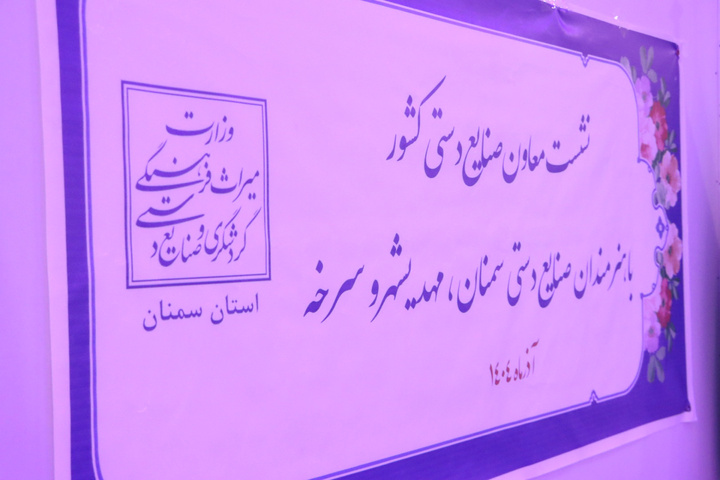 نشست معاون صنایع دستی کشور
با هنرمندان صنایع دستی سمنان، مهدیشهر و سرخه
آذرماه ۱۴۰۴
وزارت
میراث فرهنگی
گردشگری و صنایع دستی
استان سمنان